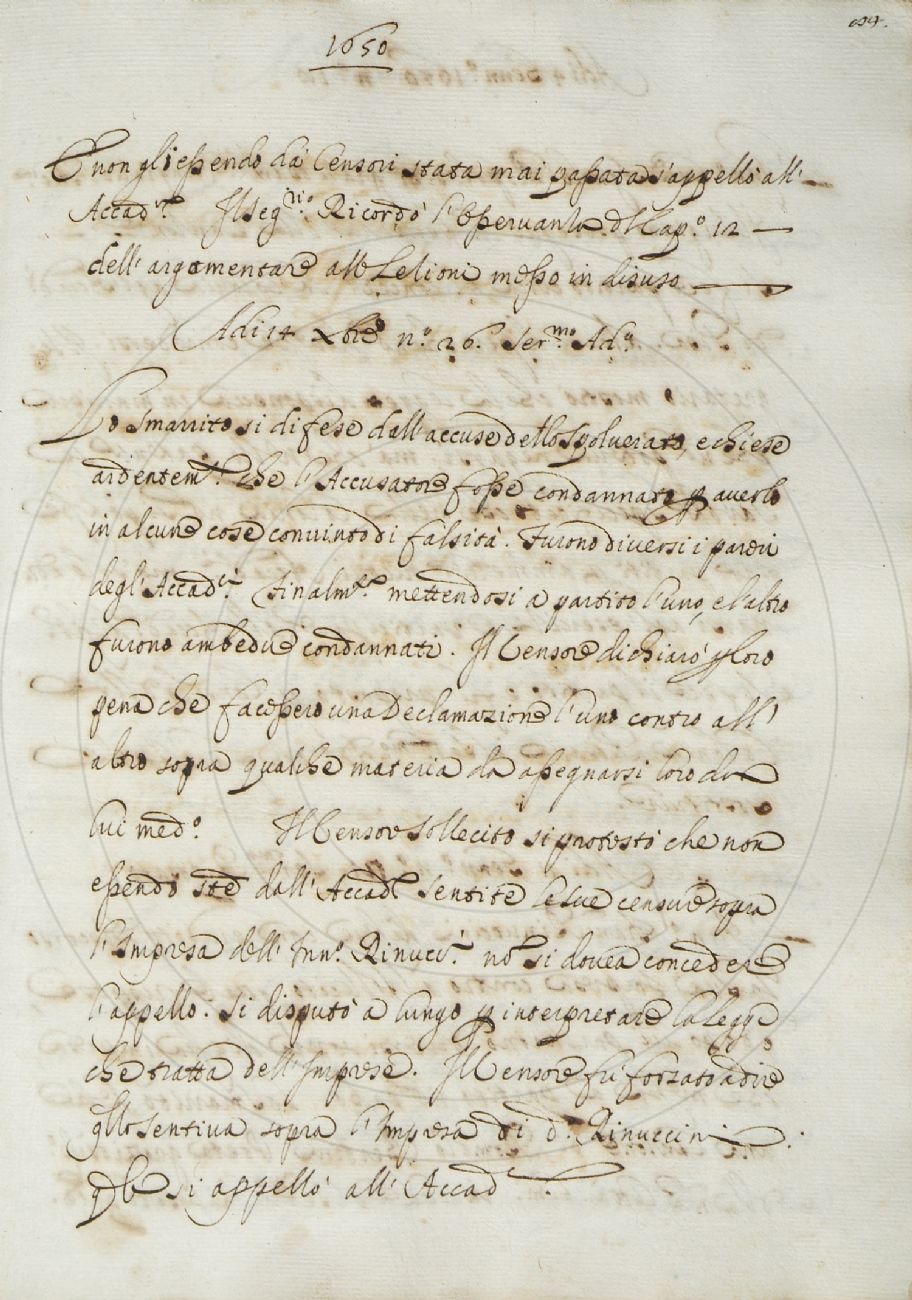 1650
E non gli essendo da Censori stata mai passata s'appellò all'
Accad.ia Il Seg.rio Ricordò l'osservanza del Cap.o 12
dell'argomentare alle Lezioni messo in disuso
Adi 14 Xbre n.o 26. Ser.mo Ad.o
Lo Smarrito si difese dall'accuse dello Spolverato, e chiese
ardentem.te che l'Accusatore fosse condannato p averlo
in alcune cose convinto di falsità. Furono diversi i pareri
degl'Accad.ci Finalm.te mettendosi a partito l'uno, e l'altro
furono ambedue condannati. Il Censore dichiarò p loro
pena che facessero una Declamazione l'uno contro all'
altro sopra qualche materia da assegnarsi loro da
lui med.o Il Censore Sollecito si protestò che non
essendo state dall'Accad. sentite le sue censure sopra
l'Impresa dell'Inn.o Rinucc.i nō si dovea concedere
l'appello. Si disputò a lungo p interpretare la legge
che tratta dell'Imprese. Il Censore fù forzato a dire
qllo sentiva sopra l'Impresa di d.o Rinuccini
si appellò all'Accad.